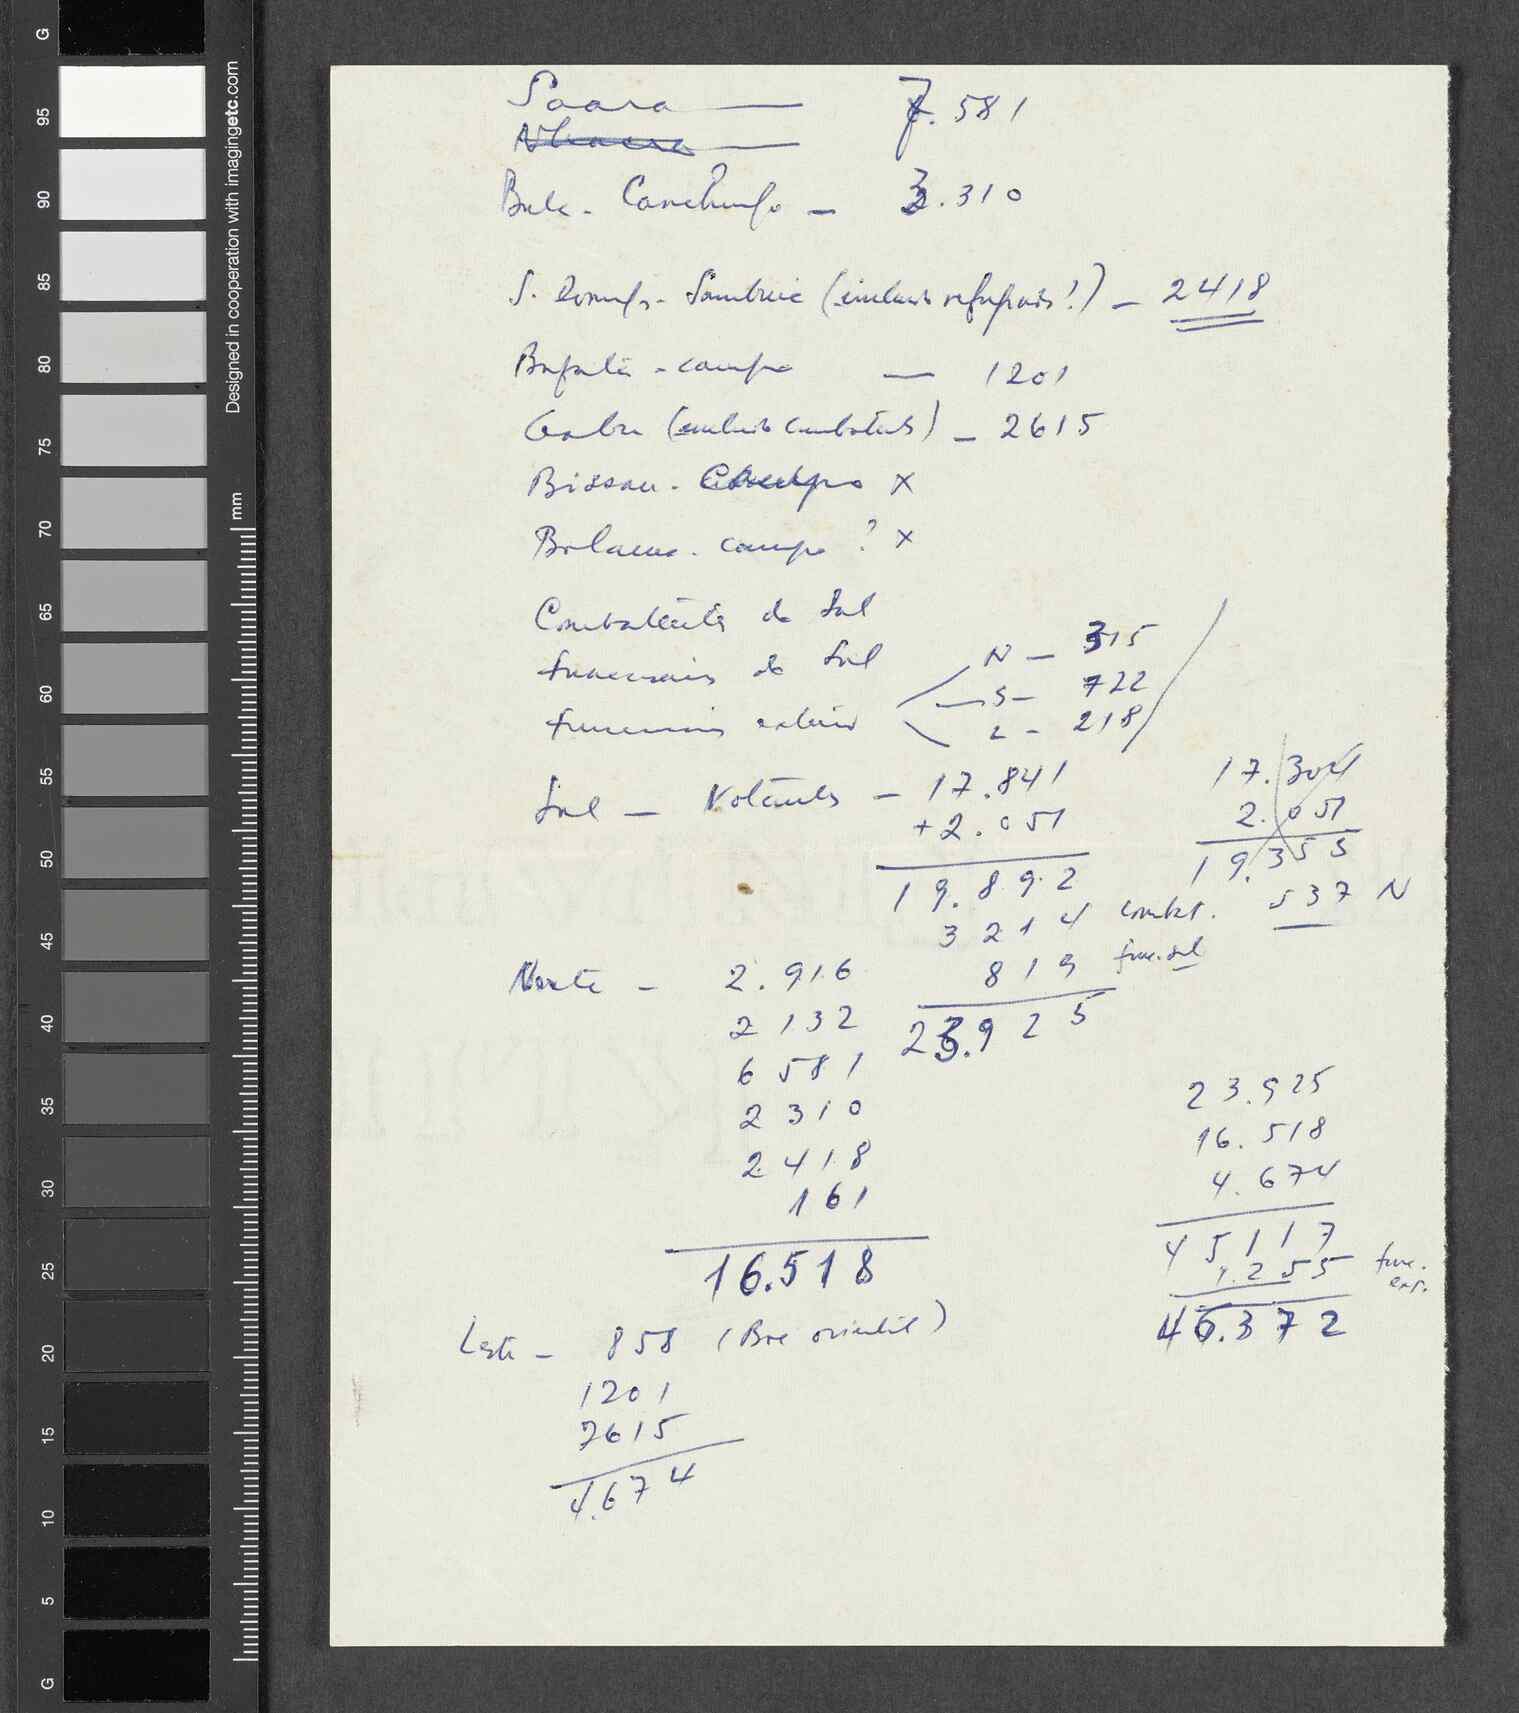 Saara — 7.581
Bula - Canchungo - 3.310
S. Domingos - Sambuia (incluis refugiados!) - 2418
Bafatá - campo — 1201
Gabu (incluis combatents) - 2615
Bissau - Campo x
Bolama - campo ? x
Combatentes do Sul
funcionários do Sul
funcionários exterior
N - 315
S - 722
L - 218
Sul - Votantes - 17.841
+2.051
19.892
3214 combat.
819 func. sul
23.925
17.304
2.051
19.355
537 N
Norte - 2.916
2132
6581
2310
2418
161
16.518
23.925
16.518
4.674
45117
1.255 func. ext.
46.372
Leste - 858 (Boe oriental)
1201
2615
4.674
Designed in cooperation with imagingetc.com
mm
G
95
90
85
80
75
70
65
60
55
50
45
40
35
30
25
20
15
10
5
G